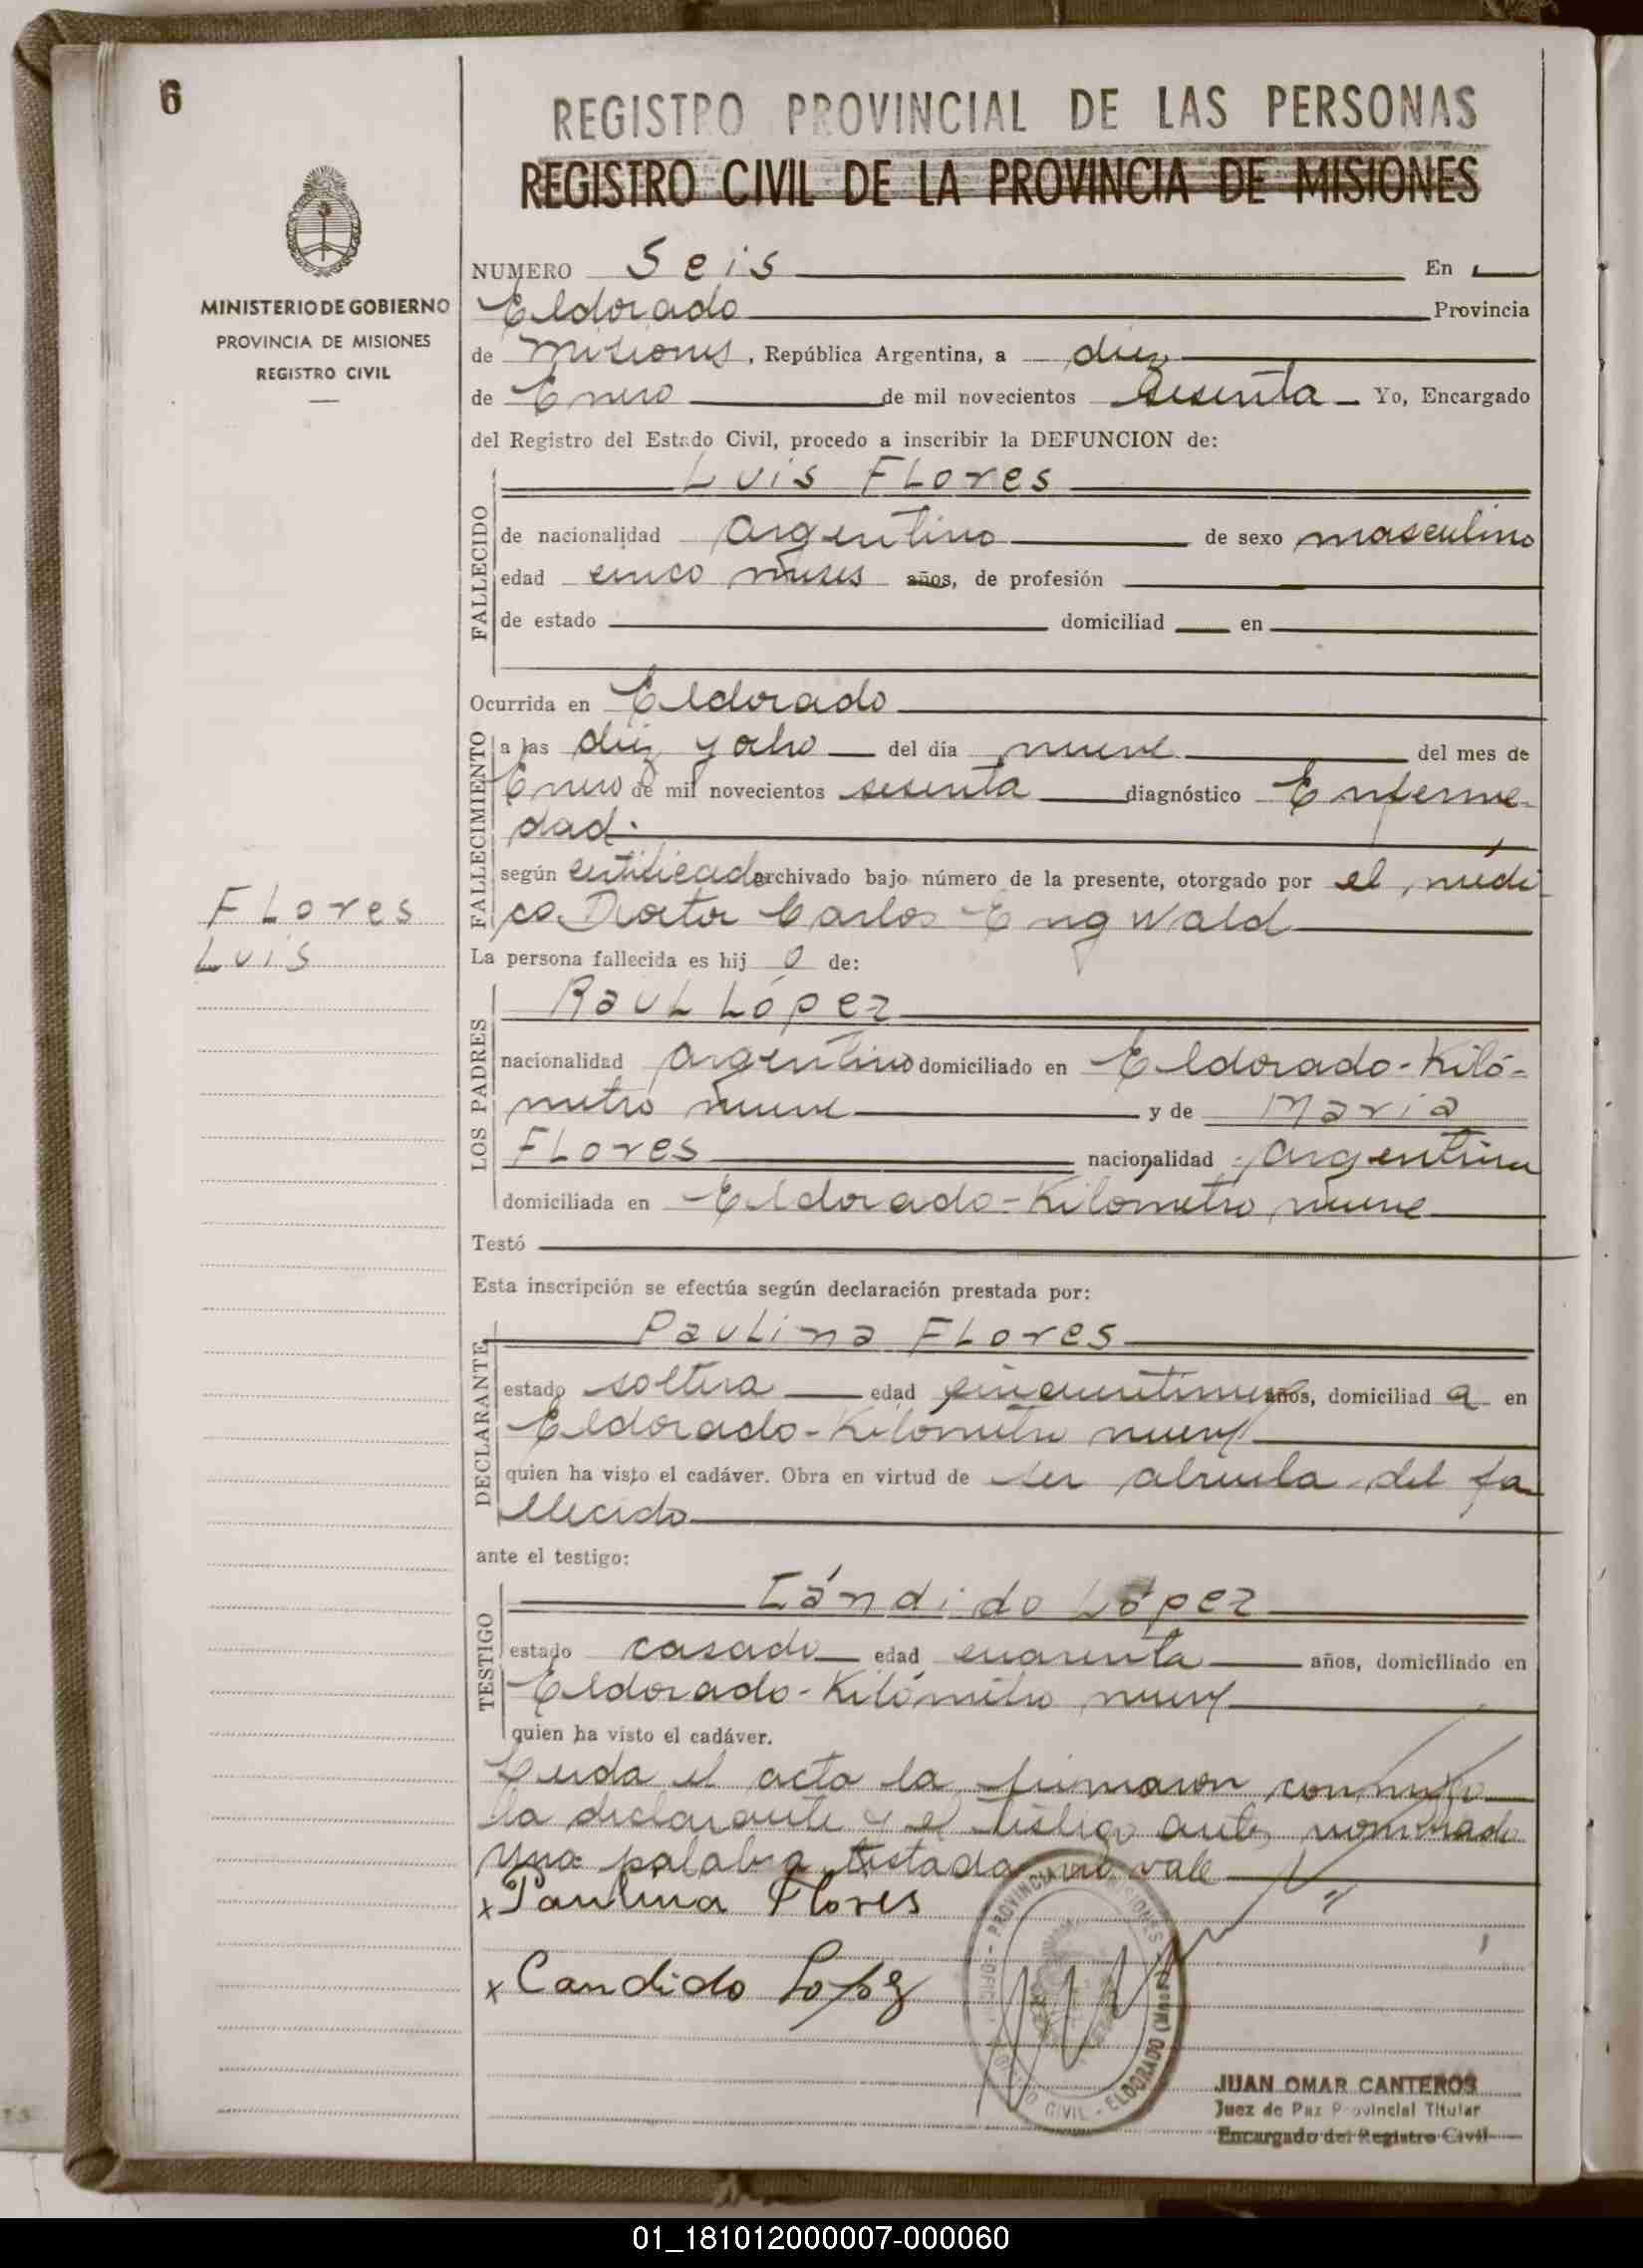 6
REGISTRO PROVINCIAL DE LAS PERSONAS
REGISTRO CIVIL DE LA PROVINCIA DE MISIONES
MINISTERIO DE GOBIERNO
PROVINCIA DE MISIONES
REGISTRO CIVIL
NUMERO Seis En
Eldorado Provincia
de Misiones, República Argentina, a diez
de Enero de mil novecientos sesenta Yo, Encargado
del Registro del Estado Civil, procedo a inscribir la DEFUNCION de:
Luis FLores
FALLECIDO
de nacionalidad argentino de sexo masculino
edad cinco meses años, de profesión
de estado domiciliad en
Ocurrida en Eldorado
FALLECIMIENTO
a las diez y ocho del día nueve del mes de
Enero de mil novecientos sesenta diagnóstico Enferme-
dad.
según certificado archivado bajo número de la presente, otorgado por el médi
co Doctor Carlos Engwald
Flores
Luis
La persona fallecida es hij o de:
Raul López
LOS PADRES
nacionalidad argentino domiciliado en Eldorado-Kiló-
metro nueve y de Maria
FLores nacionalidad argentina
domiciliada en Eldorado-Kilometro nueve
Testó
Esta inscripción se efectúa según declaración prestada por:
Paulina FLores
DECLARANTE
estado soltera edad años, domiciliad a en
Eldorado-Kilómetro nueve
quien ha visto el cadáver. Obra en virtud de ser abuela del fa
llecido
ante el testigo:
Cándido López
TESTIGO
estado casado edad cuarenta años, domiciliado en
Eldorado-Kilómetro nueve
quien ha visto el cadáver.
Leida el acta la firmaron conmigo
la declarante y el testigo antes nombrado
Una palabra testada no vale
x Paulina Flores
x Candido Lopez
PROVINCIA MISIONES
CIVIL - ELDORADO
JUAN OMAR CANTEROS
Juez de Paz Provincial Titular
Encargado del Registro Civil
01_181012000007-000060